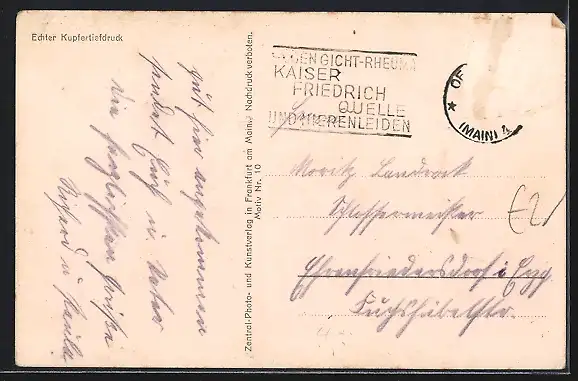 Echter Kupfertiefdruck
gut hier angekommen
sendet Euch u. Vater
die herzlichsten Grüße
Richard u. Familie
Zentral-Photo- und Kunstverlag in Frankfurt am Main. Nachdruck verboten.
Motiv Nr. 10
GEGEN GICHT-RHEUMA
KAISER
FRIEDRICH
QUELLE
UND NIERENLEIDEN
OF
★ (MAIN) 4
Moritz Landrock
Schlossermeister
Ehrenfriedersdorf i. Erzg.
£2